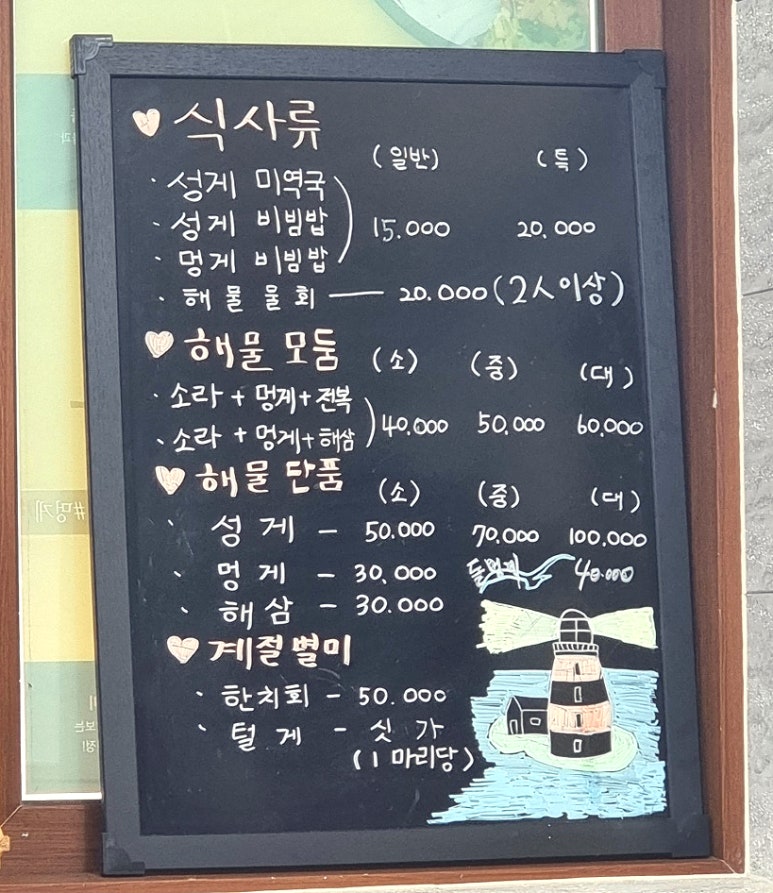 식사류
(일반) (특)
· 성게 미역국
· 성게 비빔밥 15.000 20.000
· 멍게 비빔밥
· 해물 물회 — 20.000 (2人이상)
해물 모둠 (소) (중) (대)
· 소라 + 멍게 + 전복
· 소라 + 멍게 + 해삼 40.000 50.000 60.000
해물 단품 (소) (중) (대)
· 성게 - 50.000 70.000 100.000
· 멍게 - 30.000 돌멍게 40.000
· 해삼 - 30.000
계절별미
· 한치회 - 50.000
· 털게 - 싯가
(1마리당)
#멍게